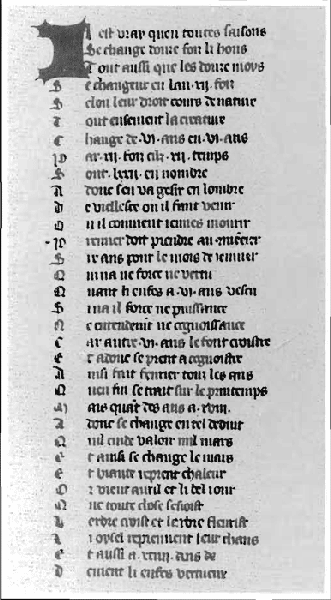 Il est vray quen toutes saisons
Se change douze fois li hons
Tout aussi que les douze moys
Se changent en lan .xii. fois
Selon leur droit cours de nature
Tout ensement la creature
Change de .vi. ans en .vi. ans
Par .xii. fois cilz .xii. temps
Sont .lxxii. en nombre
Adonc sen va gesir en lombre
De viellesce ou il faut venir
Ou il convient jeunes mourir
Premier doit prendre au
.vi. ans pour le mois de jenvier
Qui na ne force ne vertu
Quant li enfes a .vi. ans vescu
Si na il force ne puissance
Ne entendement ne cognoissance
Car autre .vi. ans le font croistre
Et adonc se prent a cognoistre
Ainsi fait fevrier tous les ans
Quen fin se trait sur le printemps
Mais quant des ans a .xviii.
Adonc se change en tel deduit
Quil cuide valoir mil mars
Et ainsi se change le mars
En biaute reprent chaleur
Or vient avril et li bel jour
Que toute chose sesjoist
Lerbe croist et lerbre flourist
Li oysel reprennent leur chans
Et aussi a .xxiiii. ans de
Devient li enfes vertueux